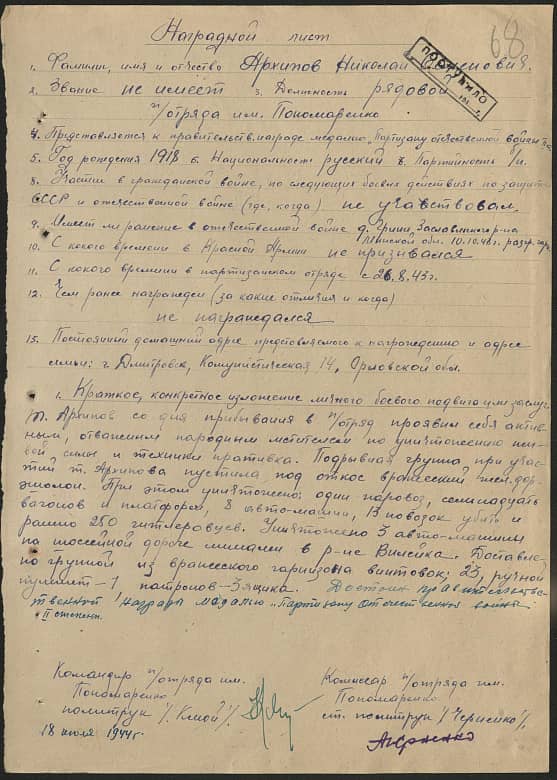 68
Наградной лист
ПОСТУПИЛО
1. Фамилия, имя и отчество Архипов Николай Семенович.
2. Звание не имеет 3. Должность рядовой
п/отряда им. Пономаренко
4. Представляется к правительств. награде медалью "Партизану отечественной войны
5. Год рождения 1918 6. Национальность русский 7. Партийность б/п.
8. Участие в гражданской войне, по следующих боевых действиях по защите
СССР и отечественной войне (где, когда) не участвовал.
9. Имеет ли ранение в отечественной войне д. Заславского р-на
Минской обл. 10.10.43 г.
10. С какого времени в Красной Армии не призывался
11. С какого времени в партизанском отряде с 26.8.43 г.
12. Чем ранее награжден (за какие отличия и когда)
не награждался
13. Постоянный домашний адрес представляемого к награждению и адрес
семьи: г. Дмитровск, Комунистическая 14, Орловской обл.
1. Краткое, конкретное изложение личного боевого подвига или заслуг
т. Архипов со дня прибывания в п/отряд проявил себя актив-
ным, отважным народным мстителем по уничтожению жи-
вой силы и техники пративка. Подрывная группа при учас-
тии т. Архипова пустила под откос вражеский жел. дор.
эшолон. При этом уничтожено: один паровоз, семнадцать
вагонов и платформ, 8 авто-машин, 13 повозок убито и
ранино 250 гитлеровцев. Уничтожено 3 авто-машины
на шоссейной дороге минами в р-не Вилейка. Доставле-
но группой из вражеского гарнизона винтовок, 23, ручной
пулимет-1, патронов-3 ящика. Достоин правительс-
твенной награды медалью "Партизану отечественной войны"
II степени.
Командир п/отряда им.
Пономаренко
политрук /. Кмой /.
18 июля 1944 г
Комиссар п/отряда им.
Пономаренко
ст. политрук /. Черненко /.